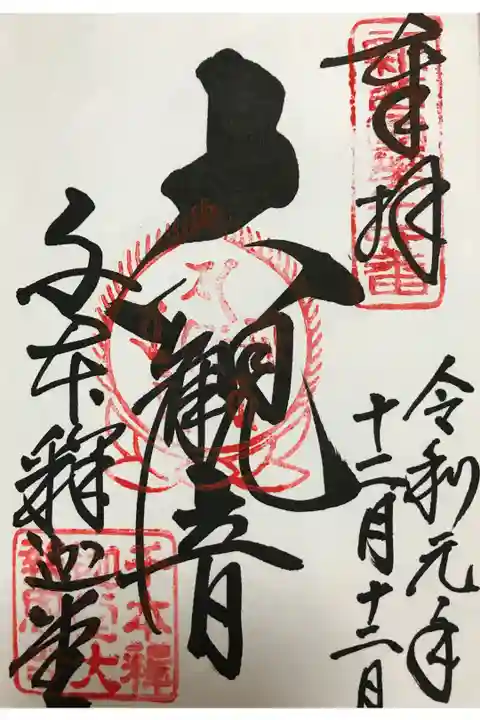 奉拝
令和元年
十二月十二日
六観音
千本釋迦堂
千本釋
迦堂大
報恩寺